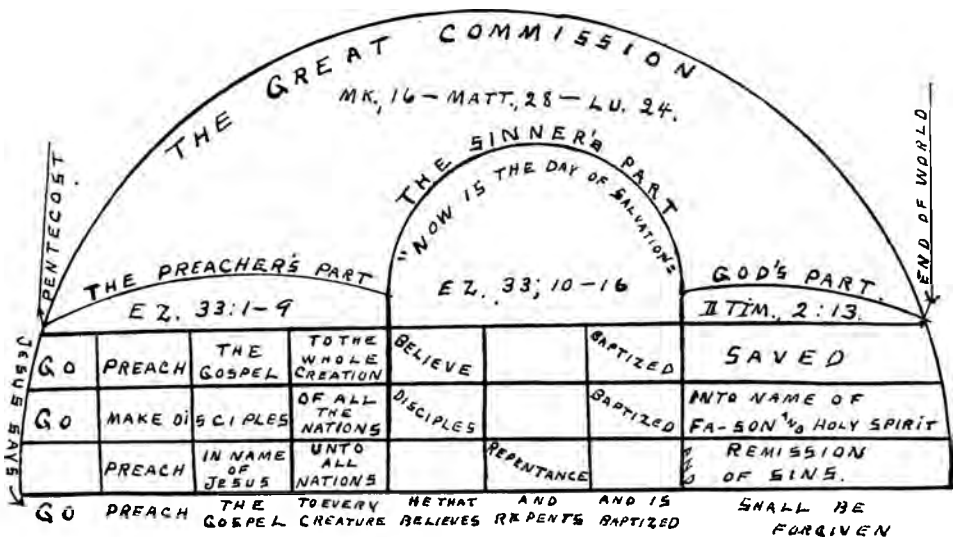 THE GREAT COMMISSION
MK, 16 — MATT, 28 — LU. 24.
PENTECOST
END OF WORLD
THE SINNER'S PART
"NOW IS THE DAY OF SALVATION"
THE PREACHER'S PART
EZ. 33:1-9
EZ. 33; 10-16
GOD'S PART.
II TIM., 2:13.
JESUS SAYS
GO PREACH THE GOSPEL TO THE WHOLE CREATION BELIEVE BAPTIZED SAVED
GO MAKE DISCIPLES OF ALL THE NATIONS DISCIPLES BAPTIZED INTO NAME OF FA-SON AND HOLY SPIRIT
PREACH IN NAME OF JESUS UNTO ALL NATIONS REPENTANCE REMISSION OF SINS.
GO PREACH THE GOSPEL TO EVERY CREATURE HE THAT BELIEVES AND REPENTS AND IS BAPTIZED SHALL BE FORGIVEN